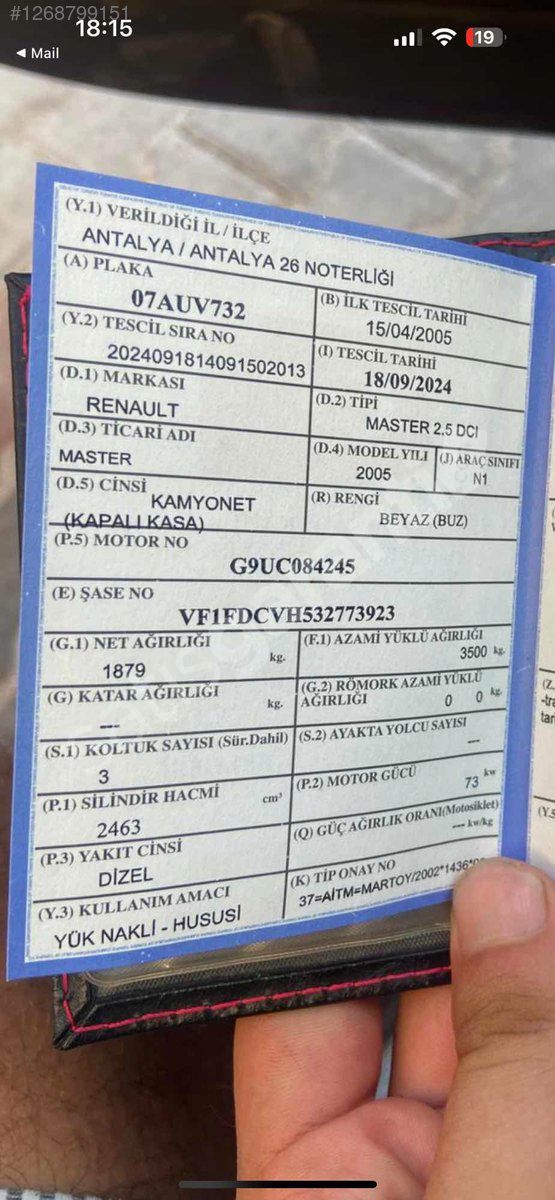 #1268799151
18:15
19
◀ Mail
(Y.1) VERİLDİĞİ İL / İLÇE
ANTALYA / ANTALYA 26 NOTERLİĞİ
(A) PLAKA
07AUV732
(B) İLK TESCİL TARİHİ
15/04/2005
(Y.2) TESCİL SIRA NO
2024091814091502013
(I) TESCİL TARİHİ
18/09/2024
(D.1) MARKASI
RENAULT
(D.2) TİPİ
MASTER 2.5 DCI
(D.3) TİCARİ ADI
MASTER
(D.4) MODEL YILI
2005
(J) ARAÇ SINIFI
N1
(D.5) CİNSİ
KAMYONET
(KAPALI KASA)
(R) RENGİ
BEYAZ (BUZ)
(P.5) MOTOR NO
G9UC084245
(E) ŞASE NO
VF1FDCVH532773923
(G.1) NET AĞIRLIĞI
1879 kg.
(F.1) AZAMİ YÜKLÜ AĞIRLIĞI
3500 kg.
(G) KATAR AĞIRLIĞI
--- kg.
(G.2) RÖMORK AZAMİ YÜKLÜ
AĞIRLIĞI 0 0 kg.
(S.1) KOLTUK SAYISI (Sür.Dahil)
3
(S.2) AYAKTA YOLCU SAYISI
---
(P.1) SİLİNDİR HACMİ cm³
2463
(P.2) MOTOR GÜCÜ
73 kw
(P.3) YAKIT CİNSİ
DİZEL
(Q) GÜÇ AĞIRLIK ORANI(Motosiklet)
--- kw/kg
(Y.3) KULLANIM AMACI
YÜK NAKLİ - HUSUSİ
(K) TİP ONAY NO
37=AİTM=MARTOY/2002*1436*